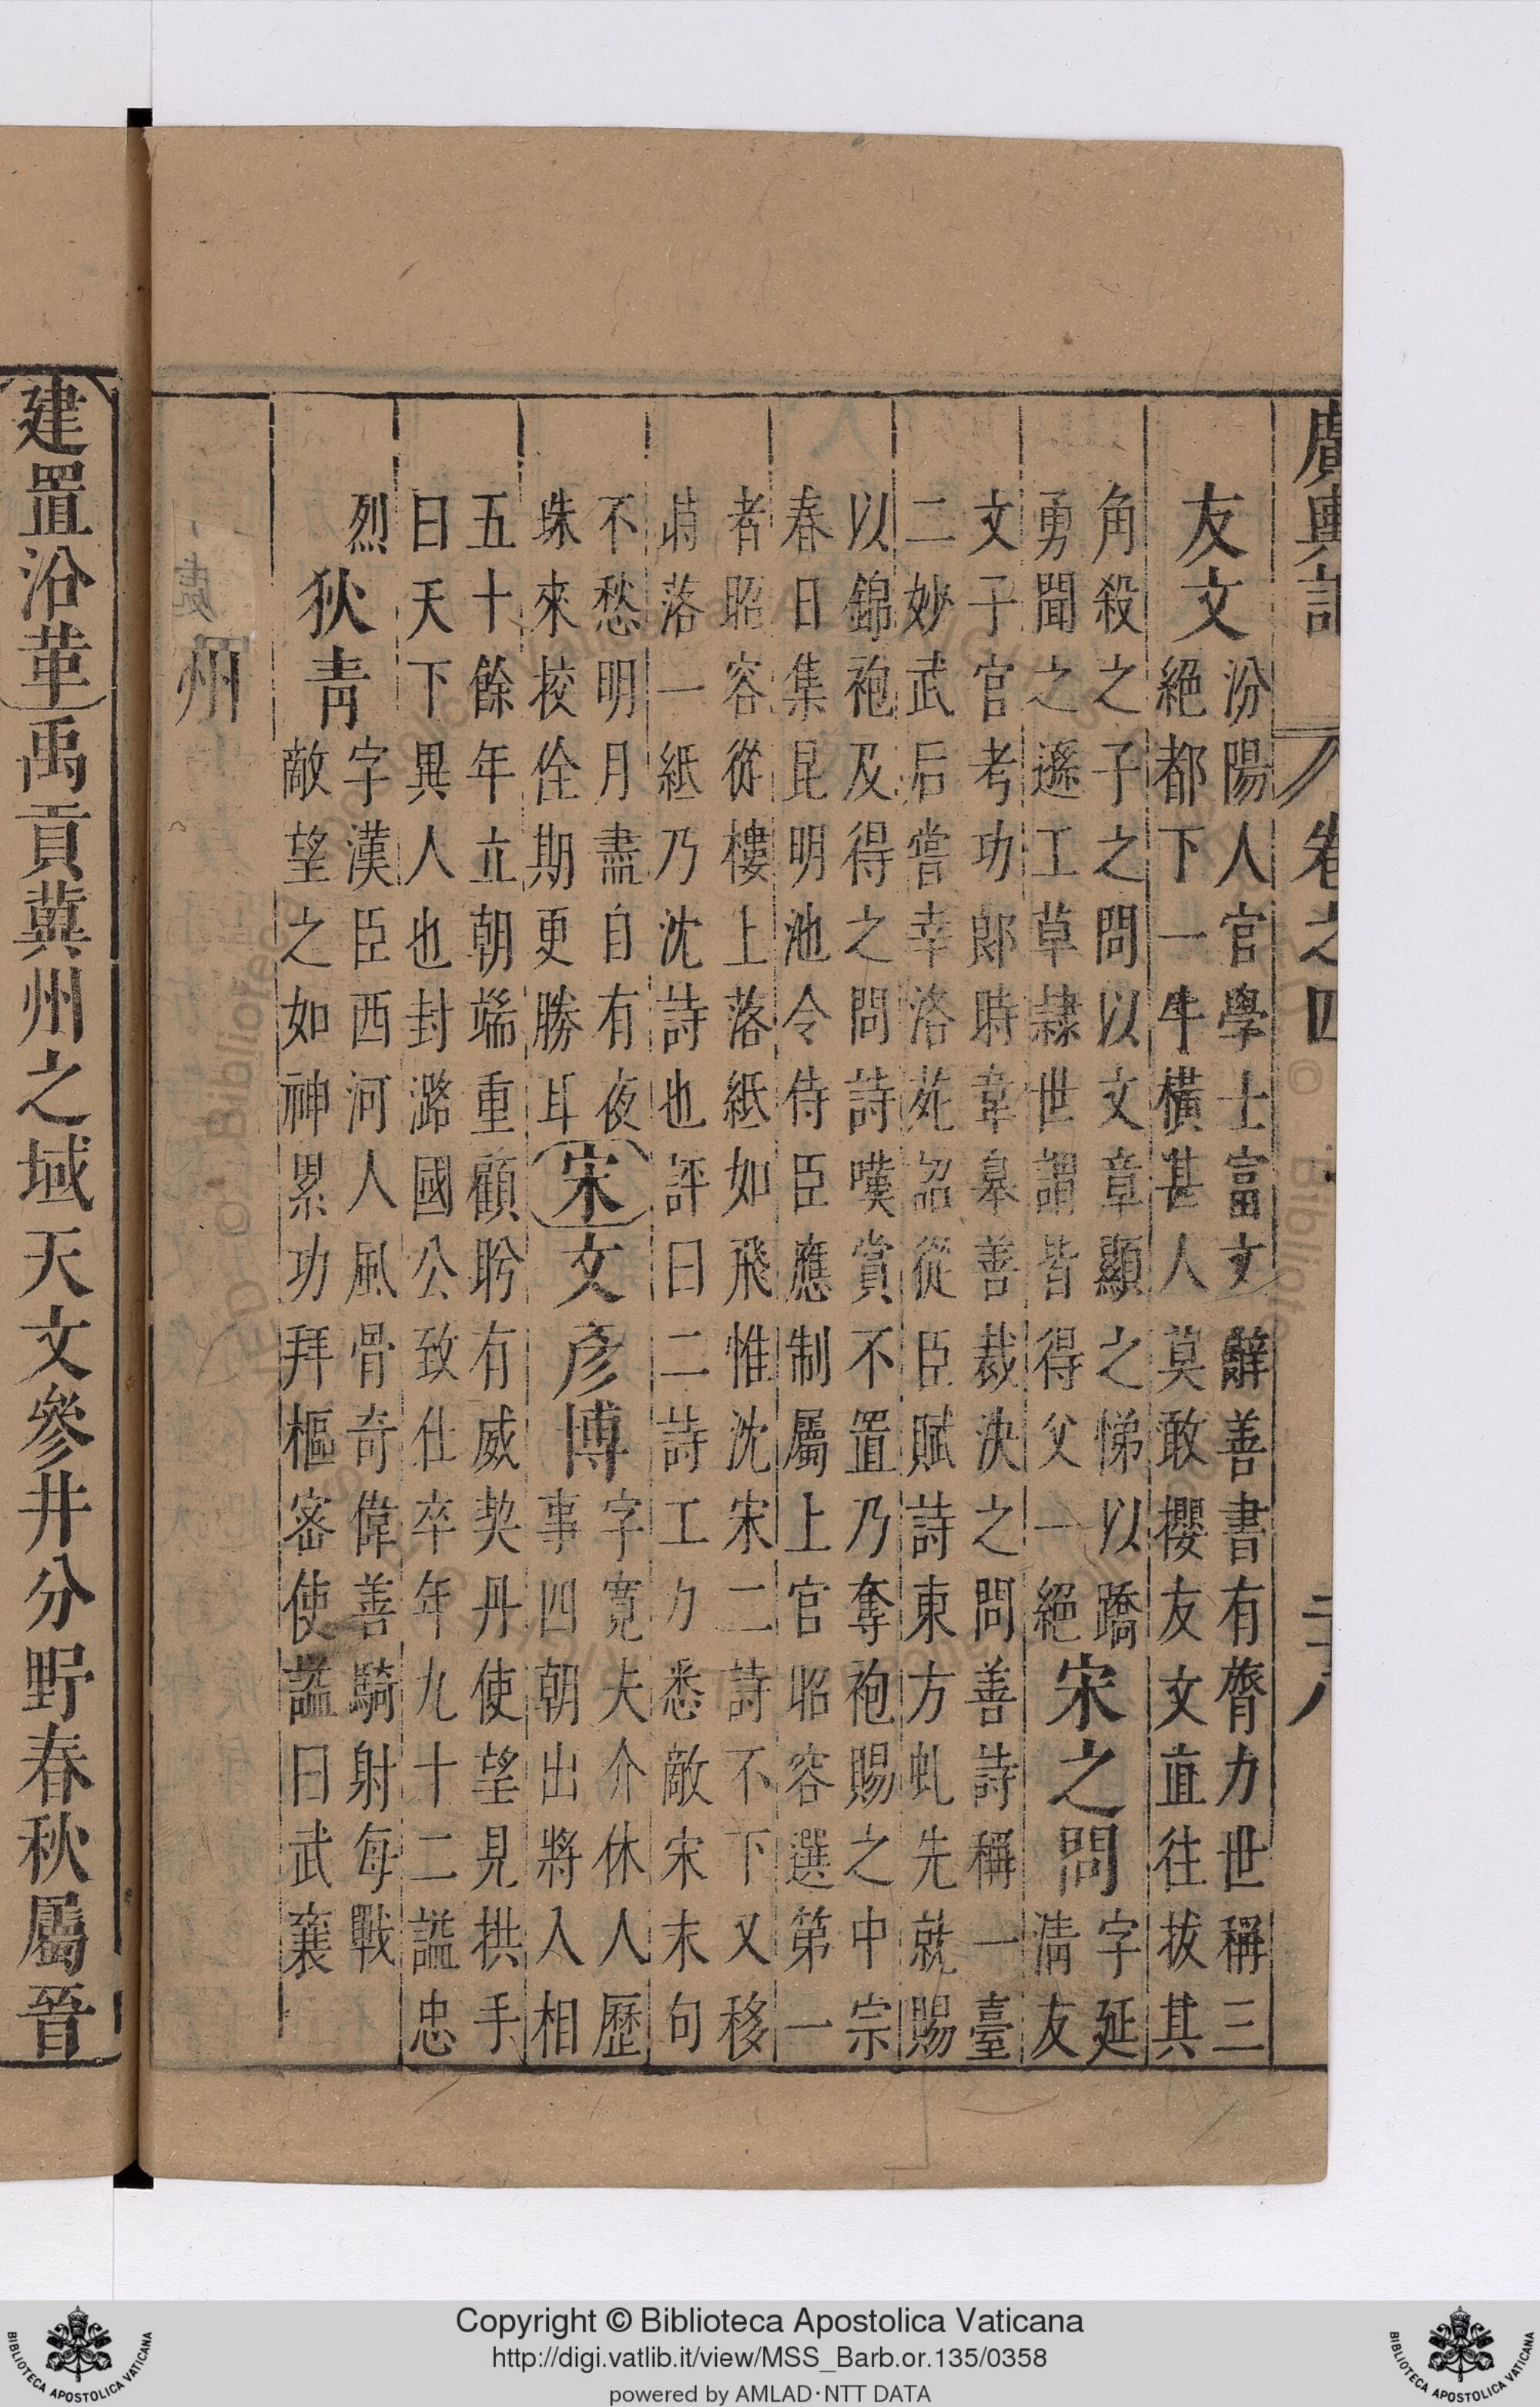 廣輿記 卷之四 二十八
友文
汾陽人官學士富文辭善書有膂力世稱三
絕都下一牛橫甚人莫敢攖友文直往拔其
角殺之子之問以文章顯之悌以蹻
勇聞之遜工草隸世謂皆得父一絕
宋之問
字延
清友
文子官考功郎時韋皋善裁決之問善詩稱一臺
二妙武后嘗幸洛苑詔從臣賦詩東方虬先就賜
以錦袍及得之問詩嘆賞不置乃奪袍賜之中宗
春日集昆明池令侍臣應制屬上官昭容選第一
者昭容從樓上落紙如飛惟沈宋二詩不下又移
時落一紙乃沈詩也評曰二詩工力悉敵宋末句
不愁明月盡自有夜
珠來挍佺期更勝耳
宋
文彥博
字寬夫介休人歷
事四朝出將入相
五十餘年立朝端重顧盻有威契丹使望見拱手
曰天下異人也封潞國公致仕卒年九十二謚忠
烈
狄青
字漢臣西河人風骨奇偉善騎射每戰
敵望之如神累功拜樞密使謚曰武襄
州
建置沿革禹貢冀州之域天文參井分野春秋屬晉
Copyright © Biblioteca Apostolica Vaticana
http://digi.vatlib.it/view/MSS_Barb.or.135/0358
powered by AMLAD·NTT DATA
BIBLIOTECA APOSTOLICA VATICANA
BIBLIOTECA APOSTOLICA VATICANA